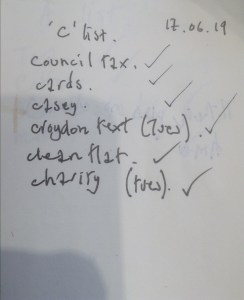 'C' list. 17.06.19
council tax.
cards.
casey.
croydon text (Tues).
clean flat.
charity (tues).